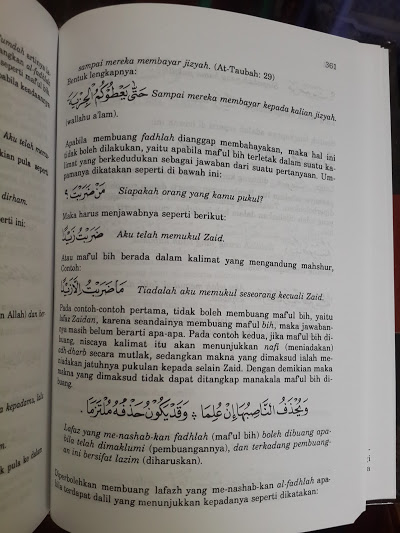 361
sampai mereka membayar jizyah. (At-Taubah: 29)
Bentuk lengkapnya:
حَتَّى يُعْطُوْكُمُ الْجِزْيَةَ Sampai mereka membayar kepada kalian jizyah.
(wallahu a'lam).
Apabila membuang fadhlah dianggap membahayakan, maka hal ini
tidak boleh dilakukan, yaitu apabila maf'ul bih terletak dalam suatu ka-
limat yang berkedudukan sebagai jawaban dari suatu pertanyaan. Um-
pamanya dikatakan seperti di bawah ini:
مَنْ ضَرَبْتَ؟ Siapakah orang yang kamu pukul?
Maka harus menjawabnya seperti berikut:
ضَرَبْتُ زَيْدًا Aku telah memukul Zaid.
Atau maf'ul bih berada dalam kalimat yang mengandung mahshur,
Contoh:
مَا ضَرَبْتُ إِلَّا زَيْدًا Tiadalah aku memukul seseorang kecuali Zaid.
Pada contoh-contoh pertama, tidak boleh membuang maf'ul bih, yaitu
lafaz Zaidan, karena seandainya membuang maf'ul bih, maka jawaban-
nya masih belum berarti apa-apa. Pada contoh kedua, jika maf'ul bih di-
buang, niscaya kalimat itu akan menunjukkan nafi (meniadakan)
adh-dharb secara mutlak, sedangkan makna yang dimaksud ialah me-
niadakan jatuhnya pukulan kepada selain Zaid. Dengan demikian maka
makna yang dimaksud tidak dapat ditangkap manakala maf'ul bih di-
buang.
وَيُحْذَفُ النَّاصِبُهَا إِنْ عُلِمَا * وَقَدْ يَكُوْنُ حَذْفُهُ مُلْتَزَمَا
Lafaz yang me-nashab-kan fadhlah (maf'ul bih) boleh dibuang apa-
bila telah dimaklumi (pembuangannya), dan terkadang pembuang-
an ini bersifat lazim (diharuskan).
Diperbolehkan membuang lafazh yang me-nashab-kan al-fadhlah apa-
bila terdapat dalil yang menunjukkan kepadanya seperti dikatakan: